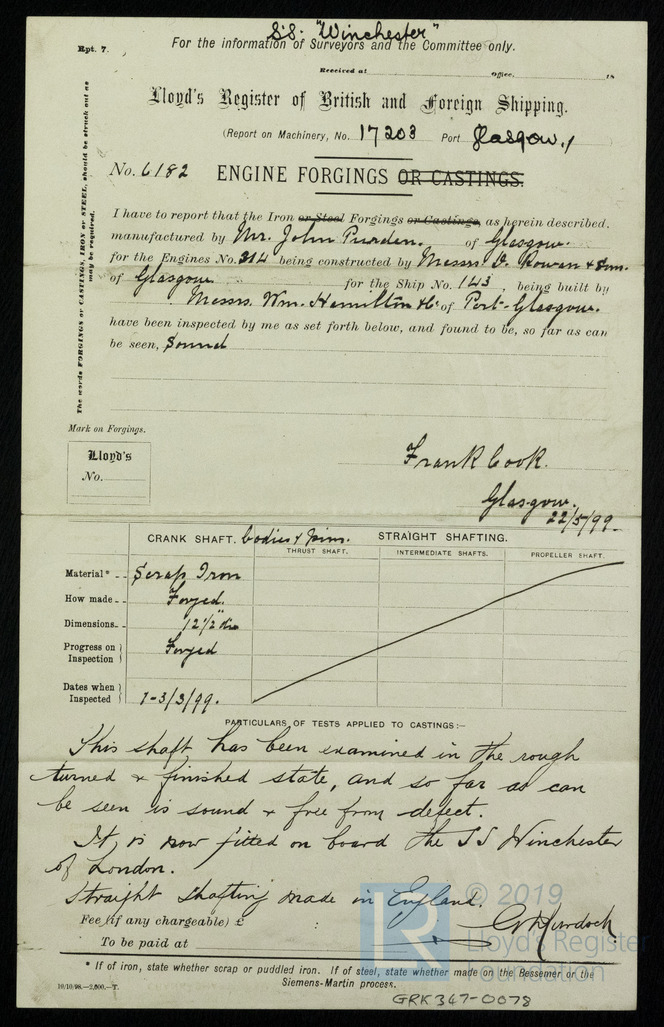 S.S. "Winchester"
Rpt. 7.
For the information of Surveyors and the Committee only.
Received at Office, 18
Lloyd's Register of British and Foreign Shipping.
(Report on Machinery, No. 17203 Port Glasgow.)
No. 6182 ENGINE FORGINGS OR CASTINGS.
The words FORGINGS or CASTINGS, IRON or STEEL, should be struck out as
may be required.
I have to report that the Iron or Steel Forgings or Castings, as herein described,
manufactured by Mr. John Purden. of Glasgow.
for the Engines No. 314 being constructed by Messrs D. Rowan & Son.
of Glasgow for the Ship No. 143, being built by
Messrs. Wm. Hamilton & Co of Port-Glasgow.
have been inspected by me as set forth below, and found to be, so far as can
be seen, Sound
Mark on Forgings.
Lloyd's
No.
Frank Cook.
Glasgow.
22/5/99.
CRANK SHAFT. bodies & pins. STRAIGHT SHAFTING.
THRUST SHAFT. INTERMEDIATE SHAFTS. PROPELLER SHAFT.
Material* Scrap Iron
How made Forged.
Dimensions 12 1/2" dia
Progress on Inspection Forged
Dates when Inspected 1-3/3/99.
PARTICULARS OF TESTS APPLIED TO CASTINGS:—
This shaft has been examined in the rough
turned & finished state, and so far as can
be seen is sound & free from defect.
It is now fitted on board the SS Winchester
of London.
Straight shafting made in England.
Fee (if any chargeable) £ :
To be paid at
G Murdoch
© 2019
LR
Lloyd's Register
Foundation
* If of iron, state whether scrap or puddled iron. If of steel, state whether made on the Bessemer or the
Siemens-Martin process.
10/10/98.—2,500.—T.
GRK347-0078